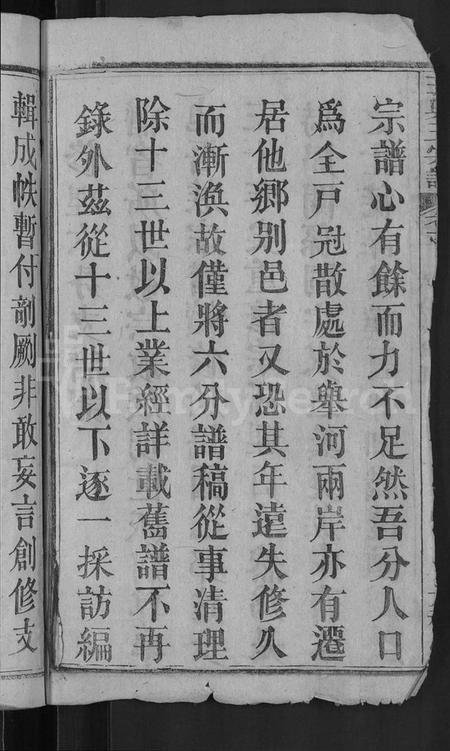 宗譜心有餘而力不足然吾分人口
爲全戸冠散處於舉河兩岸亦有遷
居他鄉別邑者又恐其年遠失修久
而漸渙故僅將六分譜稿從事清理
除十三世以上業經詳載舊譜不再
錄外茲從十三世以下逐一採訪編
輯成帙暫付剞劂非敢妄言創修支
FamilySearch